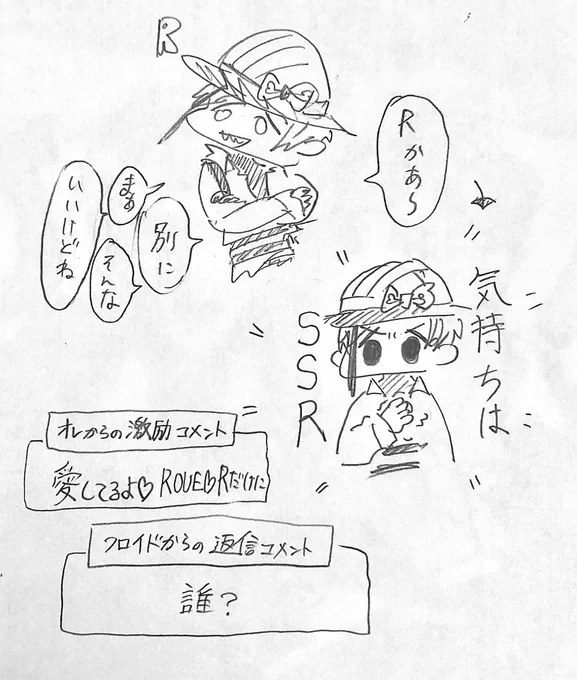 R
Rかあ〜
まぁ
別に
そんな
いいけどね
気持ちは
SSR
オレからの激励コメント
愛してるよ♡ ROVE♡Rだけに
フロイドからの返信コメント
誰？